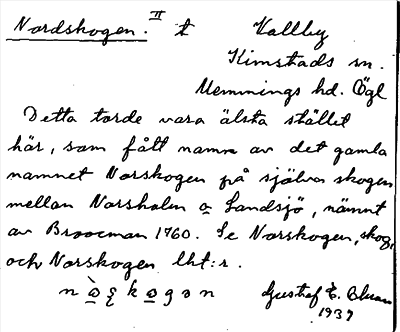 Nordskogen. II t Vallby
Kimstads sn.
Memmings hd. Ögl
Detta torde vara älsta stället
här, som fått namn av det gamla
namnet Norskogen på själva skogen
mellan Norsholm o Landsjö, nämnt
av Broocman 1760. Se Norskogen, skog,
och Norskogen lht:r.
Gustaf E.
1937